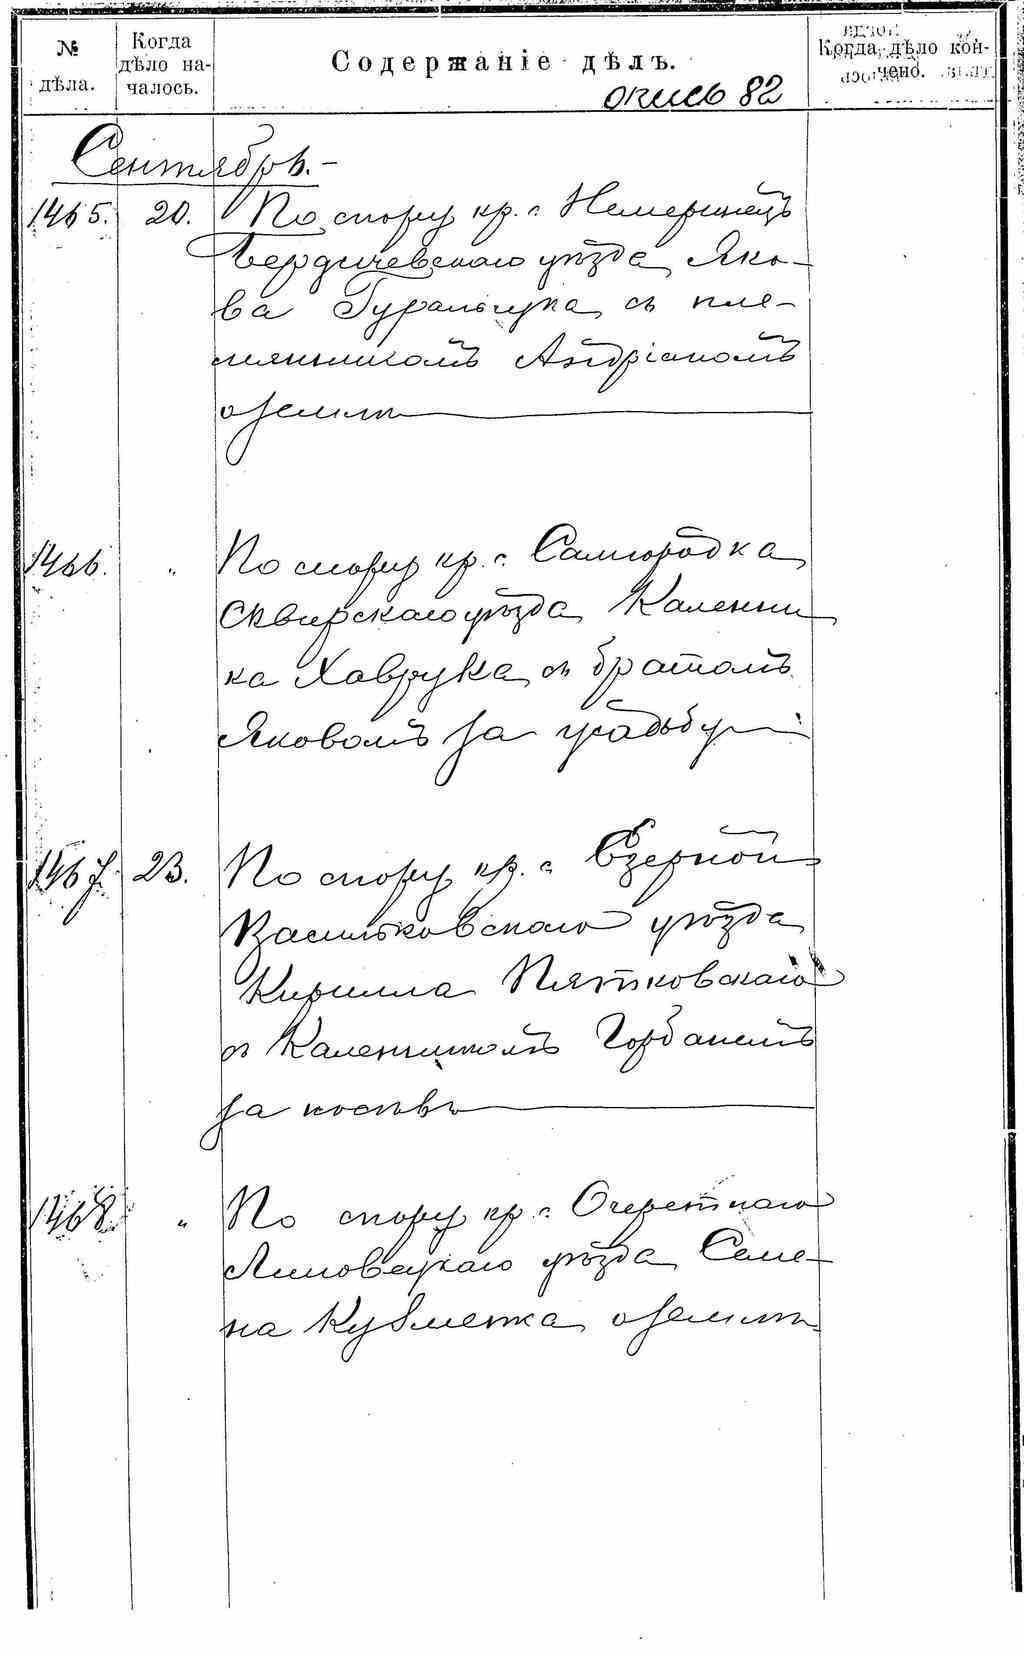 № дѣла.
Когда дѣло на-
чалось.
Содержаніе дѣлъ.
Когда дѣло кон-
чено.
опись 82
Сентябрь.-
1465. 20. По спору кр. с. Немеринецъ
Бердичевскаго уѣзда Яко-
ва Гуральчука съ пле-
мянникомъ Андріаномъ
о землѣ
1466. „ По спору кр. с. Самгородка
Сквирскаго уѣзда Каленни
ка Хаврука съ братомъ
Яковомъ за усадьбу
1467. 23. По спору кр. с. Езерной
Васильковскаго уѣзда
Кирилла Пятковскаго
съ Каленникомъ Горбанемъ
за посѣвъ
1468. „ По спору кр. с. Очеретнаго
Липовецкаго уѣзда Семе-
на Кузменка о землѣ